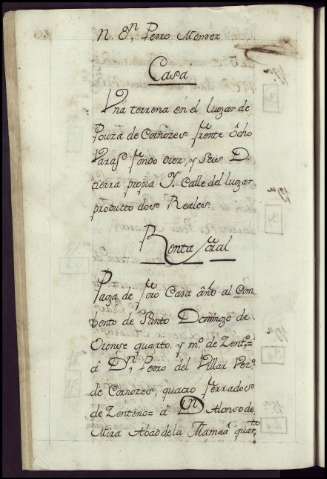 N. 8.ⁿ Pedro Mendez
Casa
Una terrena en el Lugar de
Pouza de Cañozes frente ocho
varas, fondo diez, y seis D.
tierra propia Y. Calle del lugar
producto dos Reales.
Renta foral
Paga de foro Casa año al Con
bento de Santo Domingo de
Orense quarto, y m.º de Zent.º
á D.ⁿ Pedro del Villar Vez.º
de Cañozes, quatro ferrados
de Zenteno á Dⁿ Alonso de
Mira Abad de la quar.